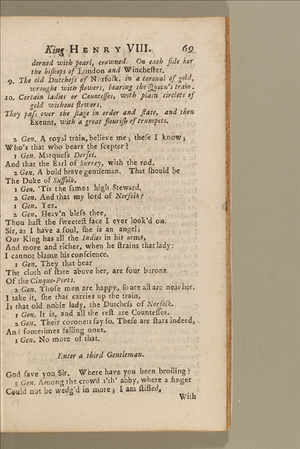 King HENRY VIII. 69
derned with pearl, crowned. On each side her
the bishops of London and Winchester.
9. The old Dutchess of Norfolk, in a coronal of gold,
wrought with flowers, bearing the Queen's train.
10. Certain ladies or Countesses, with plain circlets of
gold without flowers.
They pass over the stage in order and state, and then
Exeunt, with a great flourish of trumpets.
2 Gen. A royal train, believe me; these I know;
Who's that who bears the scepter?
1 Gen. Marquess Dorset,
And that the Earl of Surrey, with the rod.
2 Gen. A bold brave gentleman. That should be
The Duke of Suffolk.
1 Gen. 'Tis the same; high Steward.
2 Gen. And that my lord of Norfolk?
1 Gen. Yes.
2 Gen. Heav'n bless thee,
Thou hast the sweetest face I ever look'd on.
Sir, as I have a soul, she is an angel;
Our King has all the Indies in his arms,
And more and richer, when he strains that lady:
I cannot blame his conscience.
1 Gen. They that bear
The cloth of state above her, are four barons
Of the Cinque-Ports.
2 Gen. Those men are happy, so are all are near her.
I take it, she that carries up the train,
Is that old noble lady, the Dutchess of Norfolk.
1 Gen. It is, and all the rest are Countesses.
2 Gen. Their coronets say so. These are stars indeed,
And sometimes falling ones.
1 Gen. No more of that.
Enter a third Gentleman.
God save you Sir. Where have you been broiling?
3 Gen. Among the crowd i'th' abby, where a finger
Could not be wedg'd in more; I am stifled,
With